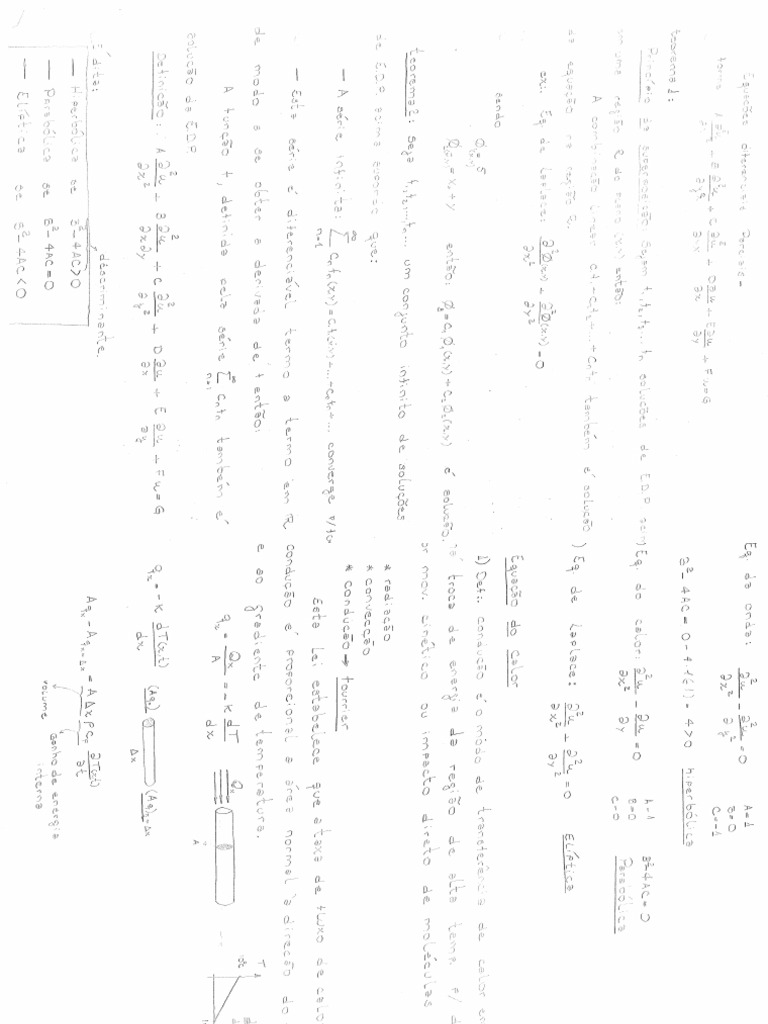 Equações diferenciais Parciais -
forma A ∂²u/∂x² + B ∂²u/∂x∂y + C ∂²u/∂y² + D ∂u/∂x + E ∂u/∂y + Fu = G
teorema 1:
Princípio da superposição Sejam f₁, f₂, f₃, ... fn soluções de EDP
em uma região R do plano (x,y) então:
A combinação linear c₁f₁ + c₂f₂ + ... + cnfn também é solução
da equação na região R.
ex: Eq. de Laplace: ∂²Ø(x,y)/∂x² + ∂²Ø(x,y)/∂y² = 0
sendo
Ø(x,y) = 5
Ø(x,y) = x + y então: Ø₃ = C₁Ø₁(x,y) + C₂Ø₂(x,y) é solução.
teorema 2: Seja f₁, f₂, ... um conjunto infinito de soluções
de EDP
— A série infinita: ∑ n=1 ∞ Cnfn(x,y) = C₁f₁(x,y) + ... converge
— Esta série é diferenciável termo a termo em R
de modo a se obter a derivada de f então:
A função f, definida pela série ∑ n=1 ∞ Cnfn também é
solução da EDP
Definição: A ∂²u/∂x² + B ∂²u/∂x∂y + C ∂²u/∂y² + D ∂u/∂x + E ∂u/∂y + Fu = G
É dita: discriminante
— Hiperbólica se B² - 4AC > 0
— Parabólica se B² - 4AC = 0
— Elíptica se B² - 4AC < 0
Eq. da onda: ∂²u/∂x² - ∂²u/∂y² = 0 A=1 B=0 C=-1
B² - 4AC = 0 - 4·1·(-1) = 4 > 0 hiperbólica
Eq. do calor: ∂²u/∂x² - ∂u/∂y = 0 A=1 B=0 C=0 B²-4AC=0 Parabólica
Eq de Laplace: ∂²u/∂x² + ∂²u/∂y² = 0 Elíptica
Equação do Calor
1) Def: condução é o modo de transferência de calor em
troca de energia da região de alta temp. p/
mov. cinético ou impacto direto de moléculas
* radiação
* convecção
* condução → fourrier
Esta lei estabelece que a taxa de fluxo de calor
condução é proporcional a área normal à direção do
e ao gradiente de temperatura.
qx = Qx/A = -K dT/dx Qx A
T
qx = -K dT(x,t)/dx (Aq)x (Aq)x+Δx Δx
Aqx - Aqx+Δx = A Δx ρ cp ∂T(x,t)/∂t
volume ganho de energia
interna